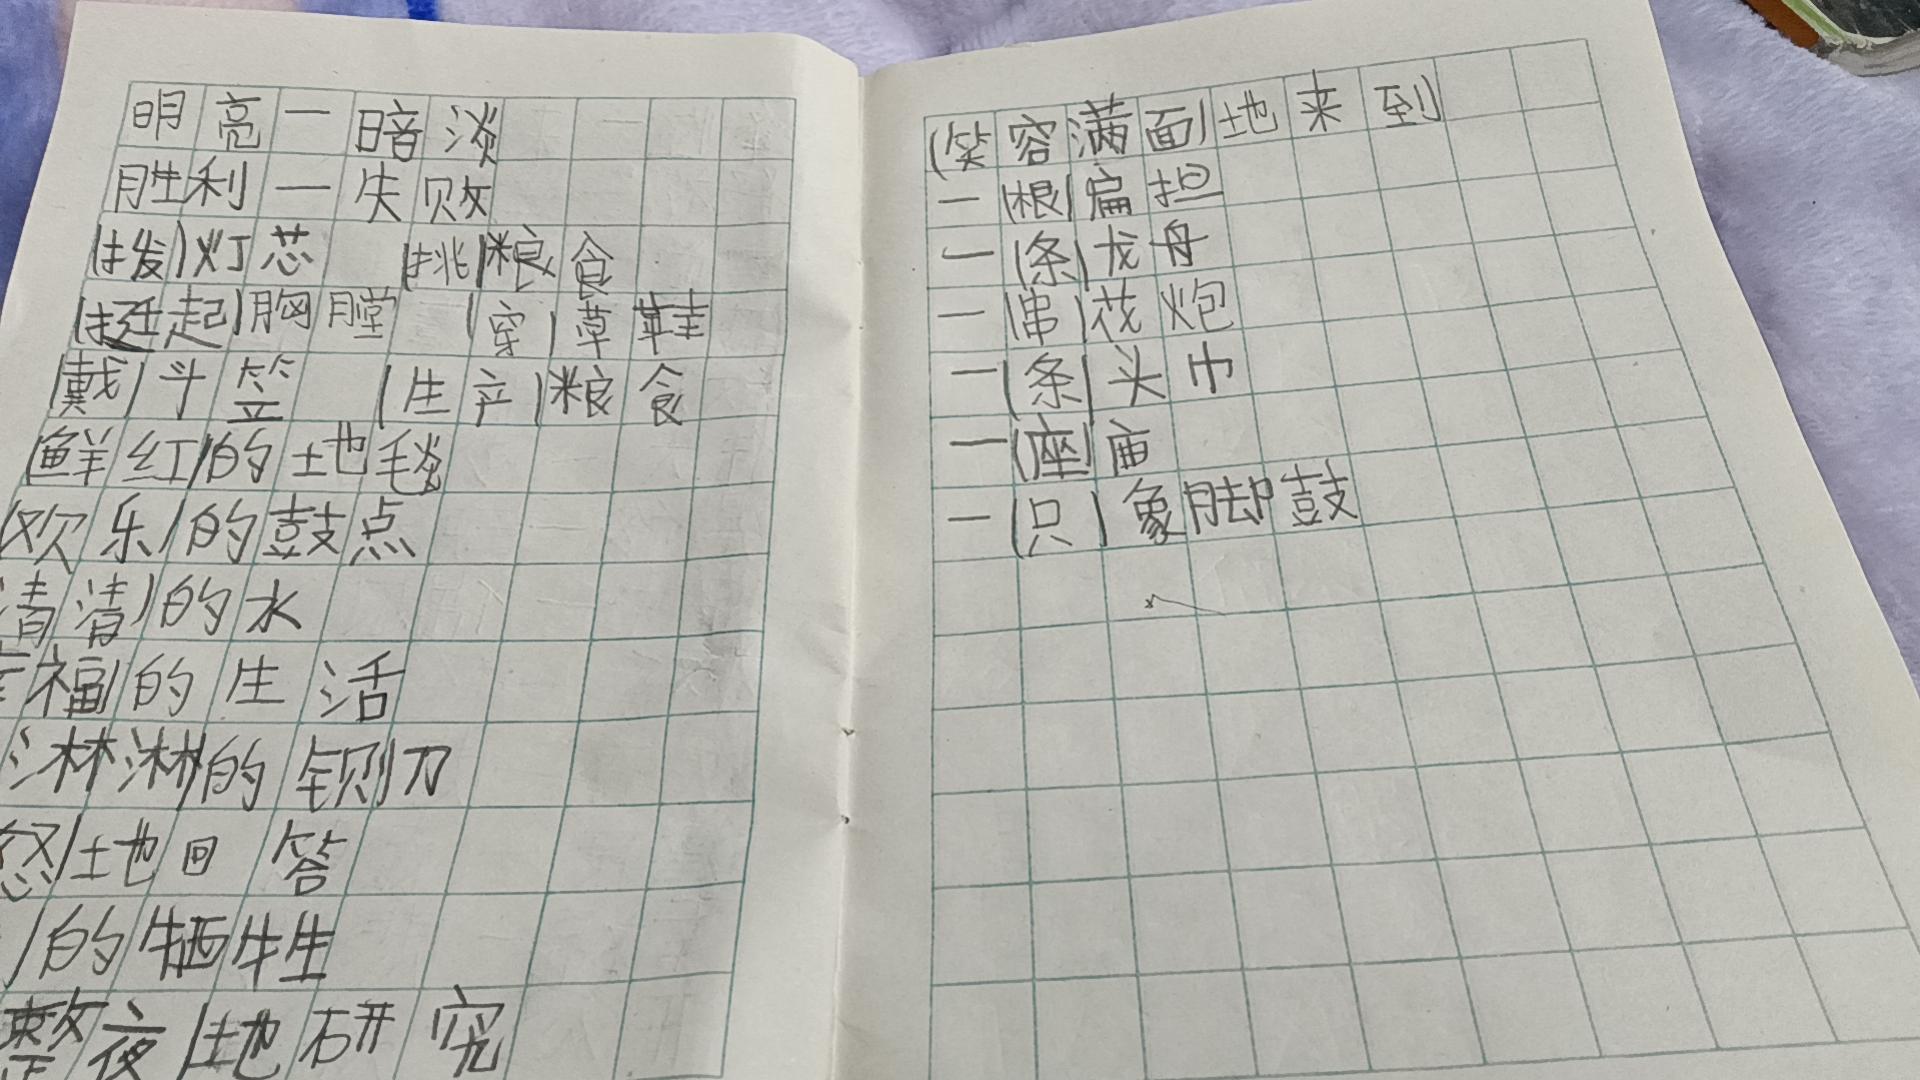 明亮—暗淡
胜利—失败
(拨)灯芯 (挑)粮食
(挺起)胸膛 (穿)草鞋
(戴)斗笠 (生产)粮食
(鲜红)的地毯
(欢乐)的鼓点
清清)的水
福)的生活
淋淋)的铡刀
怒)地回答
)的牺牲
整夜)地研究
(笑容满面)地来到
一(根)扁担
一(条)龙舟
一(串)花炮
一(条)头巾
一(座)庙
一(只)象脚鼓